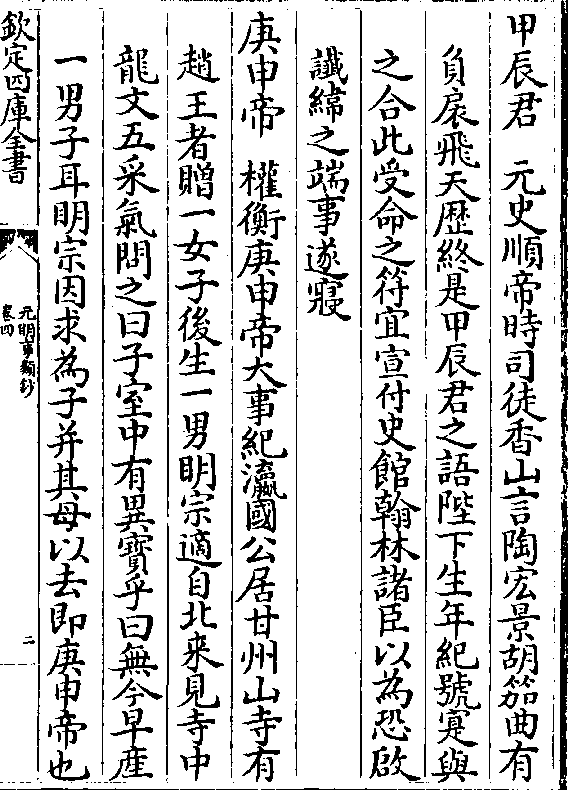 甲辰君　元史順帝時司徒香山言陶宏景胡笳曲有
負扆飛天歴終是甲辰君之語陛下生年紀號寔與
之合此受命之符宜宣付史館翰林諸臣以為恐啟
讖緯之端事遂寢
庚申帝　權衡庚申帝大事紀瀛國公居甘州山寺有
趙王者贈一女子後生一男明宗適自北来見寺中
龍文五采氣問之曰子室中有異寶乎曰無今早産
一男子耳明宗因求為子并其母以去即庚申帝也
欽定四庫全書
元明事類鈔
卷四
二